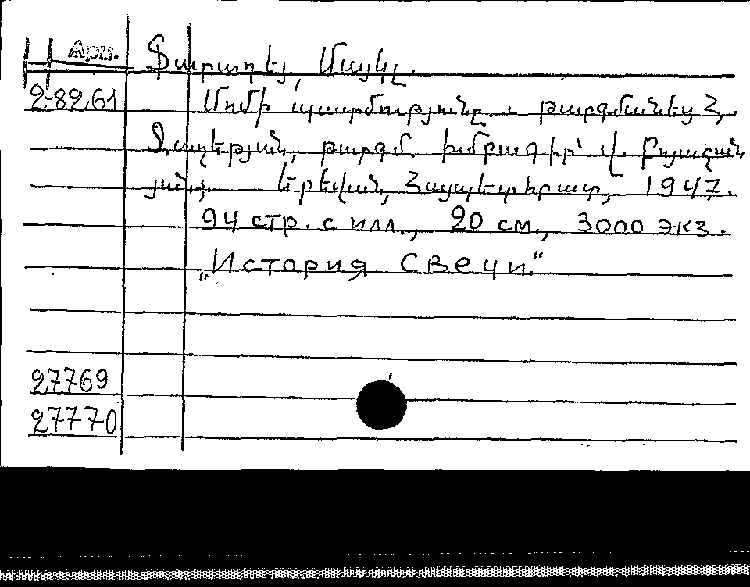 Арм. Ֆարադեյ, Մայկլ.
2-82.61 Մոմի պատմությունը. թարգմանեց Հ.
թարգմ. խմբագիր՝ Վ.
Երևան, Հայպետհրատ, 1947.
94 стр. с илл., 20 см., 3000 экз.
„История Свечи."
27769
27770